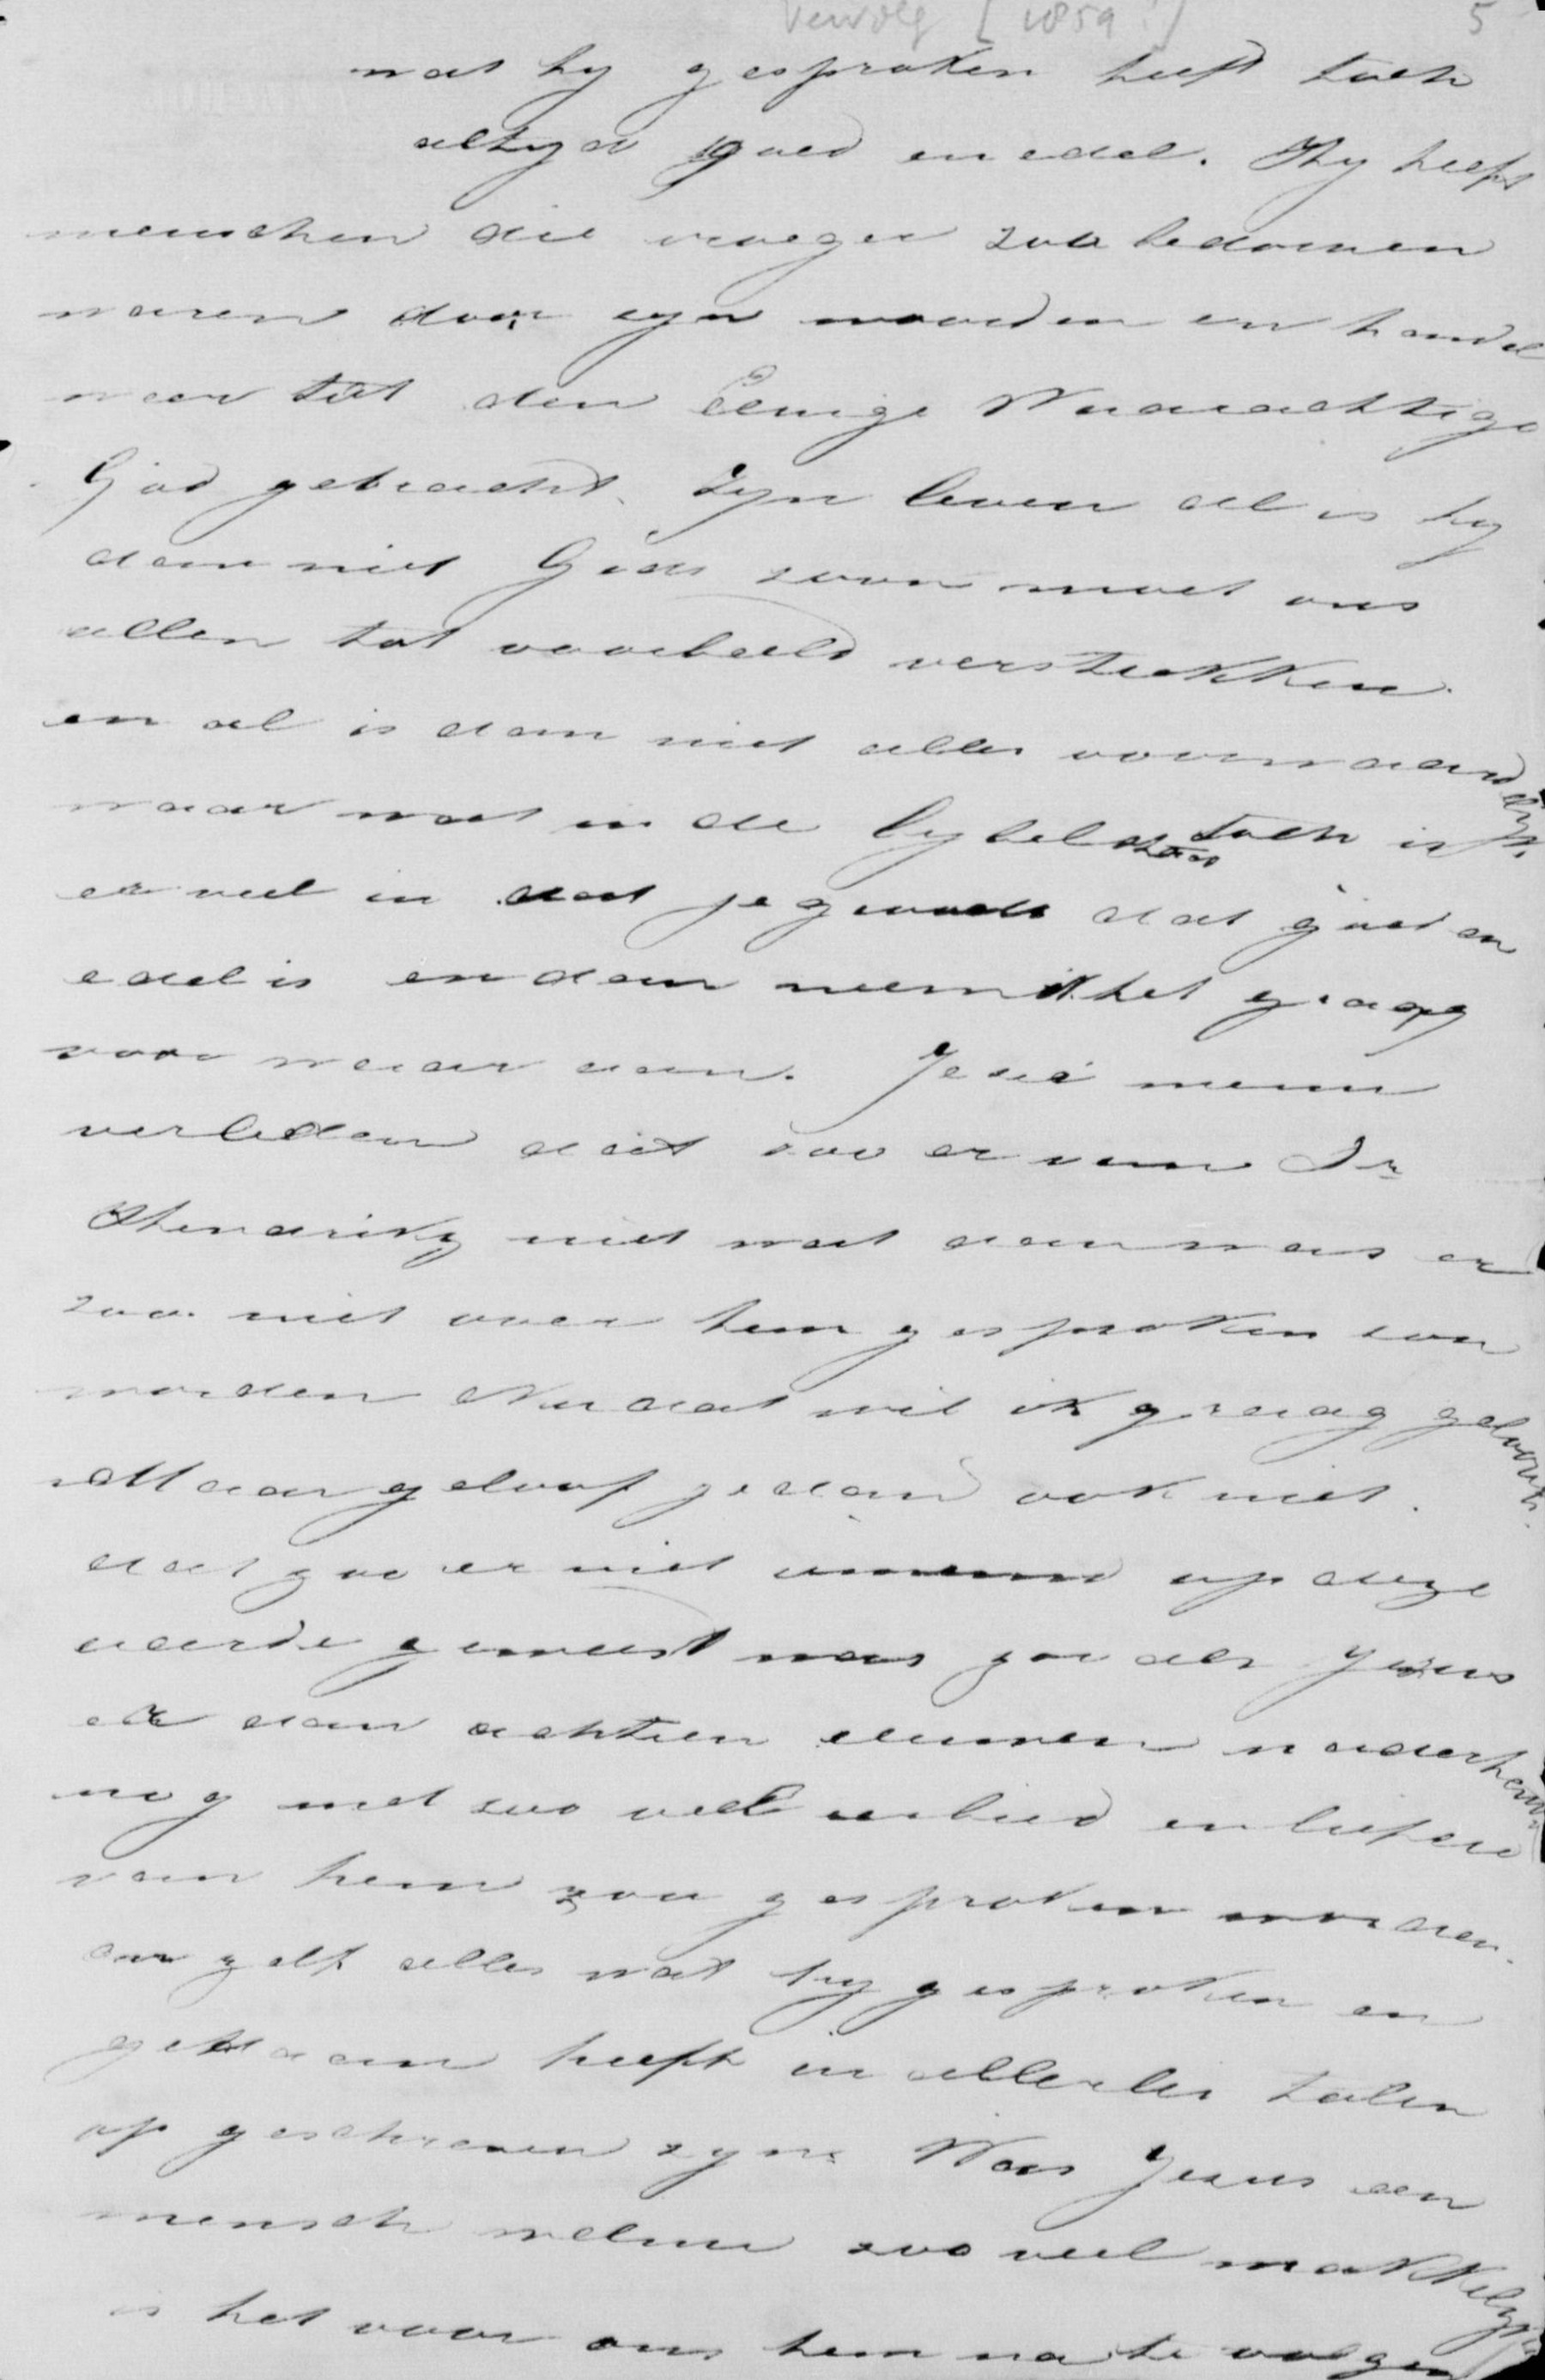 Vervolg [1859?] 5
wat hy gesproken heeft toch
altyd goed en edel. Hy heeft
menschen die vroeger zoo bedorven
waren door zyn woorden en handel
weer tot den Eenige Waarachtige
God gebracht. Zyn leven al is hy
dan niet Gods zoon moet ons
allen tot voorbeeld verstrekken
en al is dan niet alles voorwaardelyk
waar wat in de bybel staat toch is
er veel in dat je gevoelt dat goed en
edel is en dan neem ik het graag
voor waar aan. Je zei me
verleden dat zoo er van Dr
Hendriks niet wat aan was er
zoo niet over hem gesproken zou
worden Nu dat wil ik graag gelooven.
Maar geloof je dan ook niet.
dat zoo er niet iemand op deze
aarde geweest was zoo als Jezus
er dan achtien eeuwen naderhand
nog met zoo veel eerbied en liefde
van hem zou gesproken worden.
en zelf alles wat hy gesproken en
gedaan heeft in allerlei talen
op geschreven zyn. Was Jezus een
mensch welnu zoo veel makkelyker
is het voor ons hem na te volgen